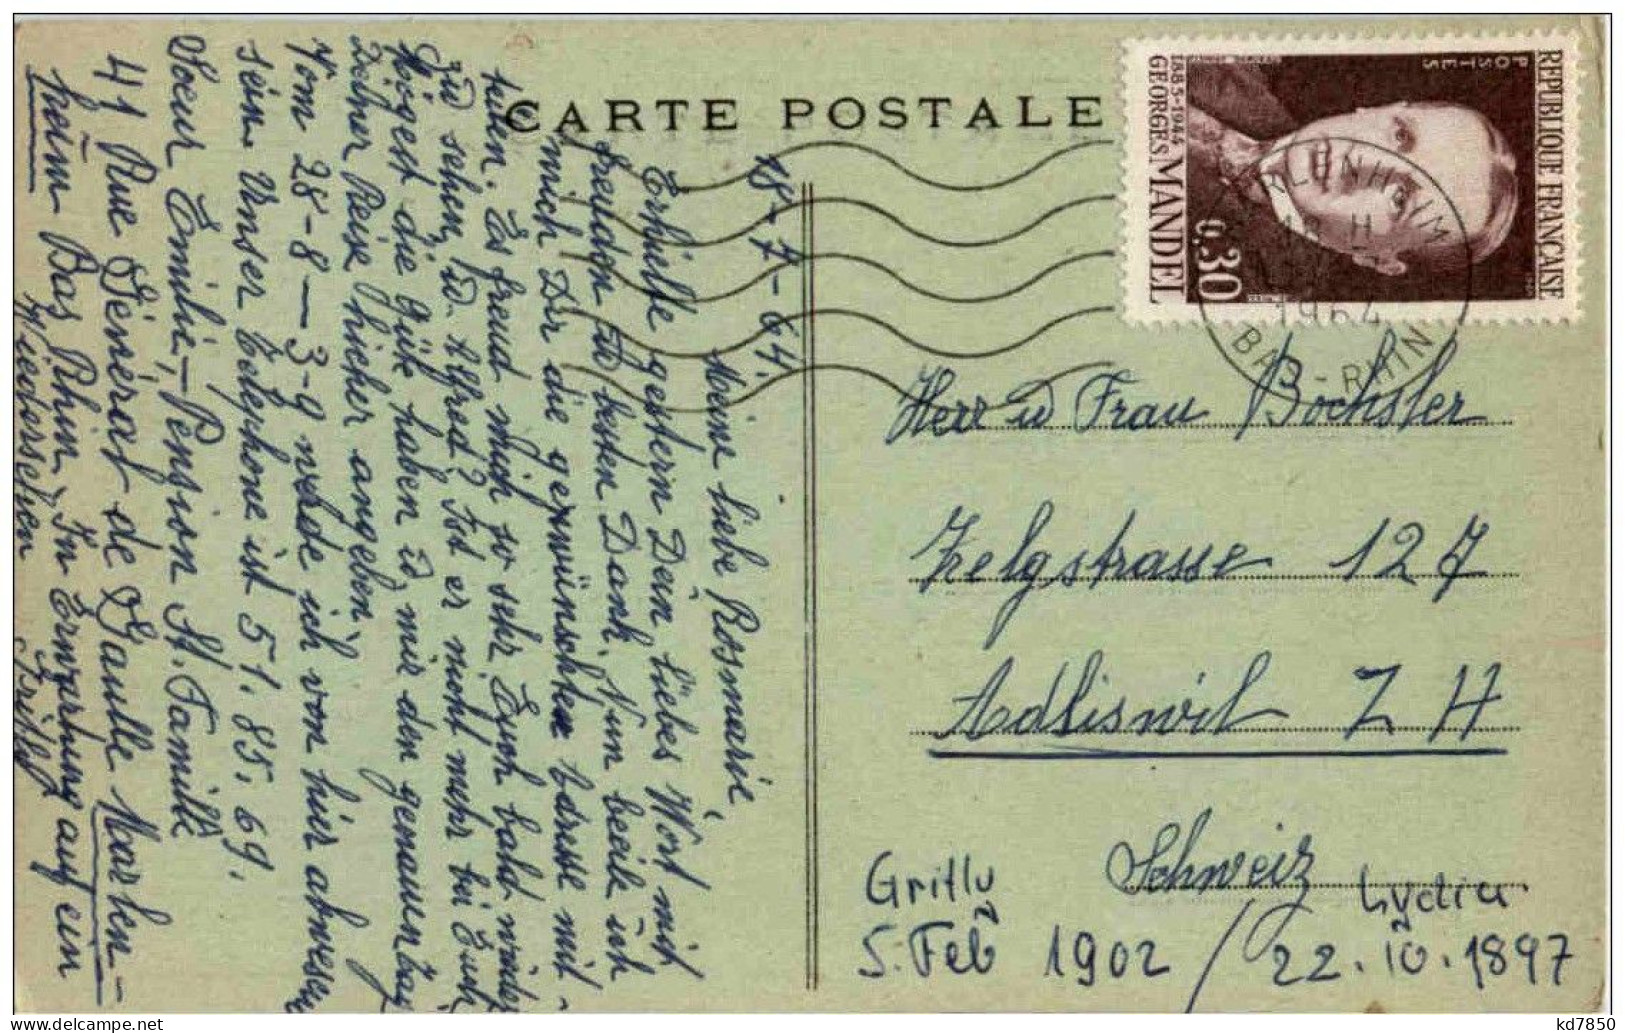 CARTE POSTALE
REPUBLIQUE FRANÇAISE
POSTES
1885-1944
GEORGES MANDEL
0,30
MARLENHEIM
1964
BAS-RHIN
18-7-64.
Meine liebe Rosmarie,
Erhielte gestern Dein liebes Wort mit
Freuden ū besten Dank. Nun beeile ich
mich Dir die gewünschten Adresse mit-
teilen. Es freud mich so sehr Euch bald wieder
zū sehen, ū. Alfred? Ist er nicht mehr bei Euch
Mögest die Güte haben ū mir den genauen Tag
Deiner Reise hieher angeben,
Vom 28-8-3-9 werde ich von hier abwesend
sein. Unser Telephone ist 51.85.69.
Soeur Emilie,-Pension St. Famille
41 Rue Général de Gaulle Marlen-
heim Bas Rhin, In Erwartung auf ein
Wiedersehen
Herr ū Frau Bochsler
Zelgstrasse 127
Adliswil ZH
Schweiz
Lydia
5. Feb 1902 / 22.IV.1897
kd7850